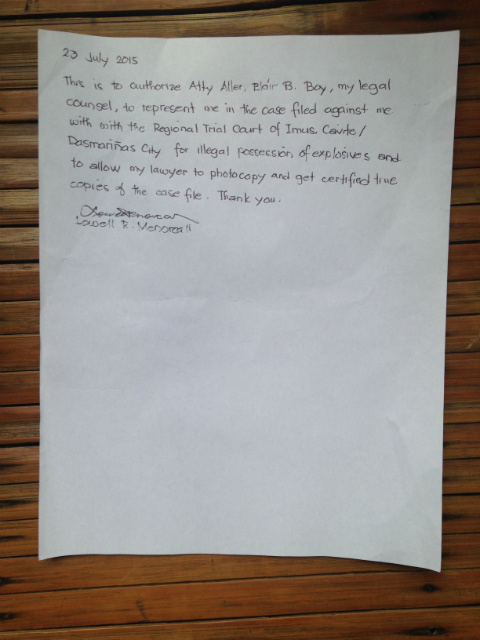 23 July 2015
This is to authorize Atty Aller, Blair B. Boy, my legal
counsel, to represent me in the case filed against me
with with the Regional Trial Court of Imus, Cavite/
Dasmariñas City for illegal possession of explosives and
to allow my lawyer to photocopy and get certified true
copies of the case file. Thank you.
Lowell R. Menorca II